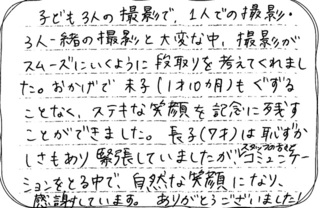 子ども3人の撮影で、1人での撮影・
3人一緒の撮影と大変な中、撮影が
スムーズにいくように段取りを考えてくれまし
た。おかげで末子(1才10ヵ月)もぐずる
ことなく、ステキな笑顔を記念に残す
ことができました。長子(7才)は恥ずか
しさもあり緊張していましたがスタッフの方々とコミュニケー
ションをとる中で、自然な笑顔になり、
感謝しています。ありがとうございました!